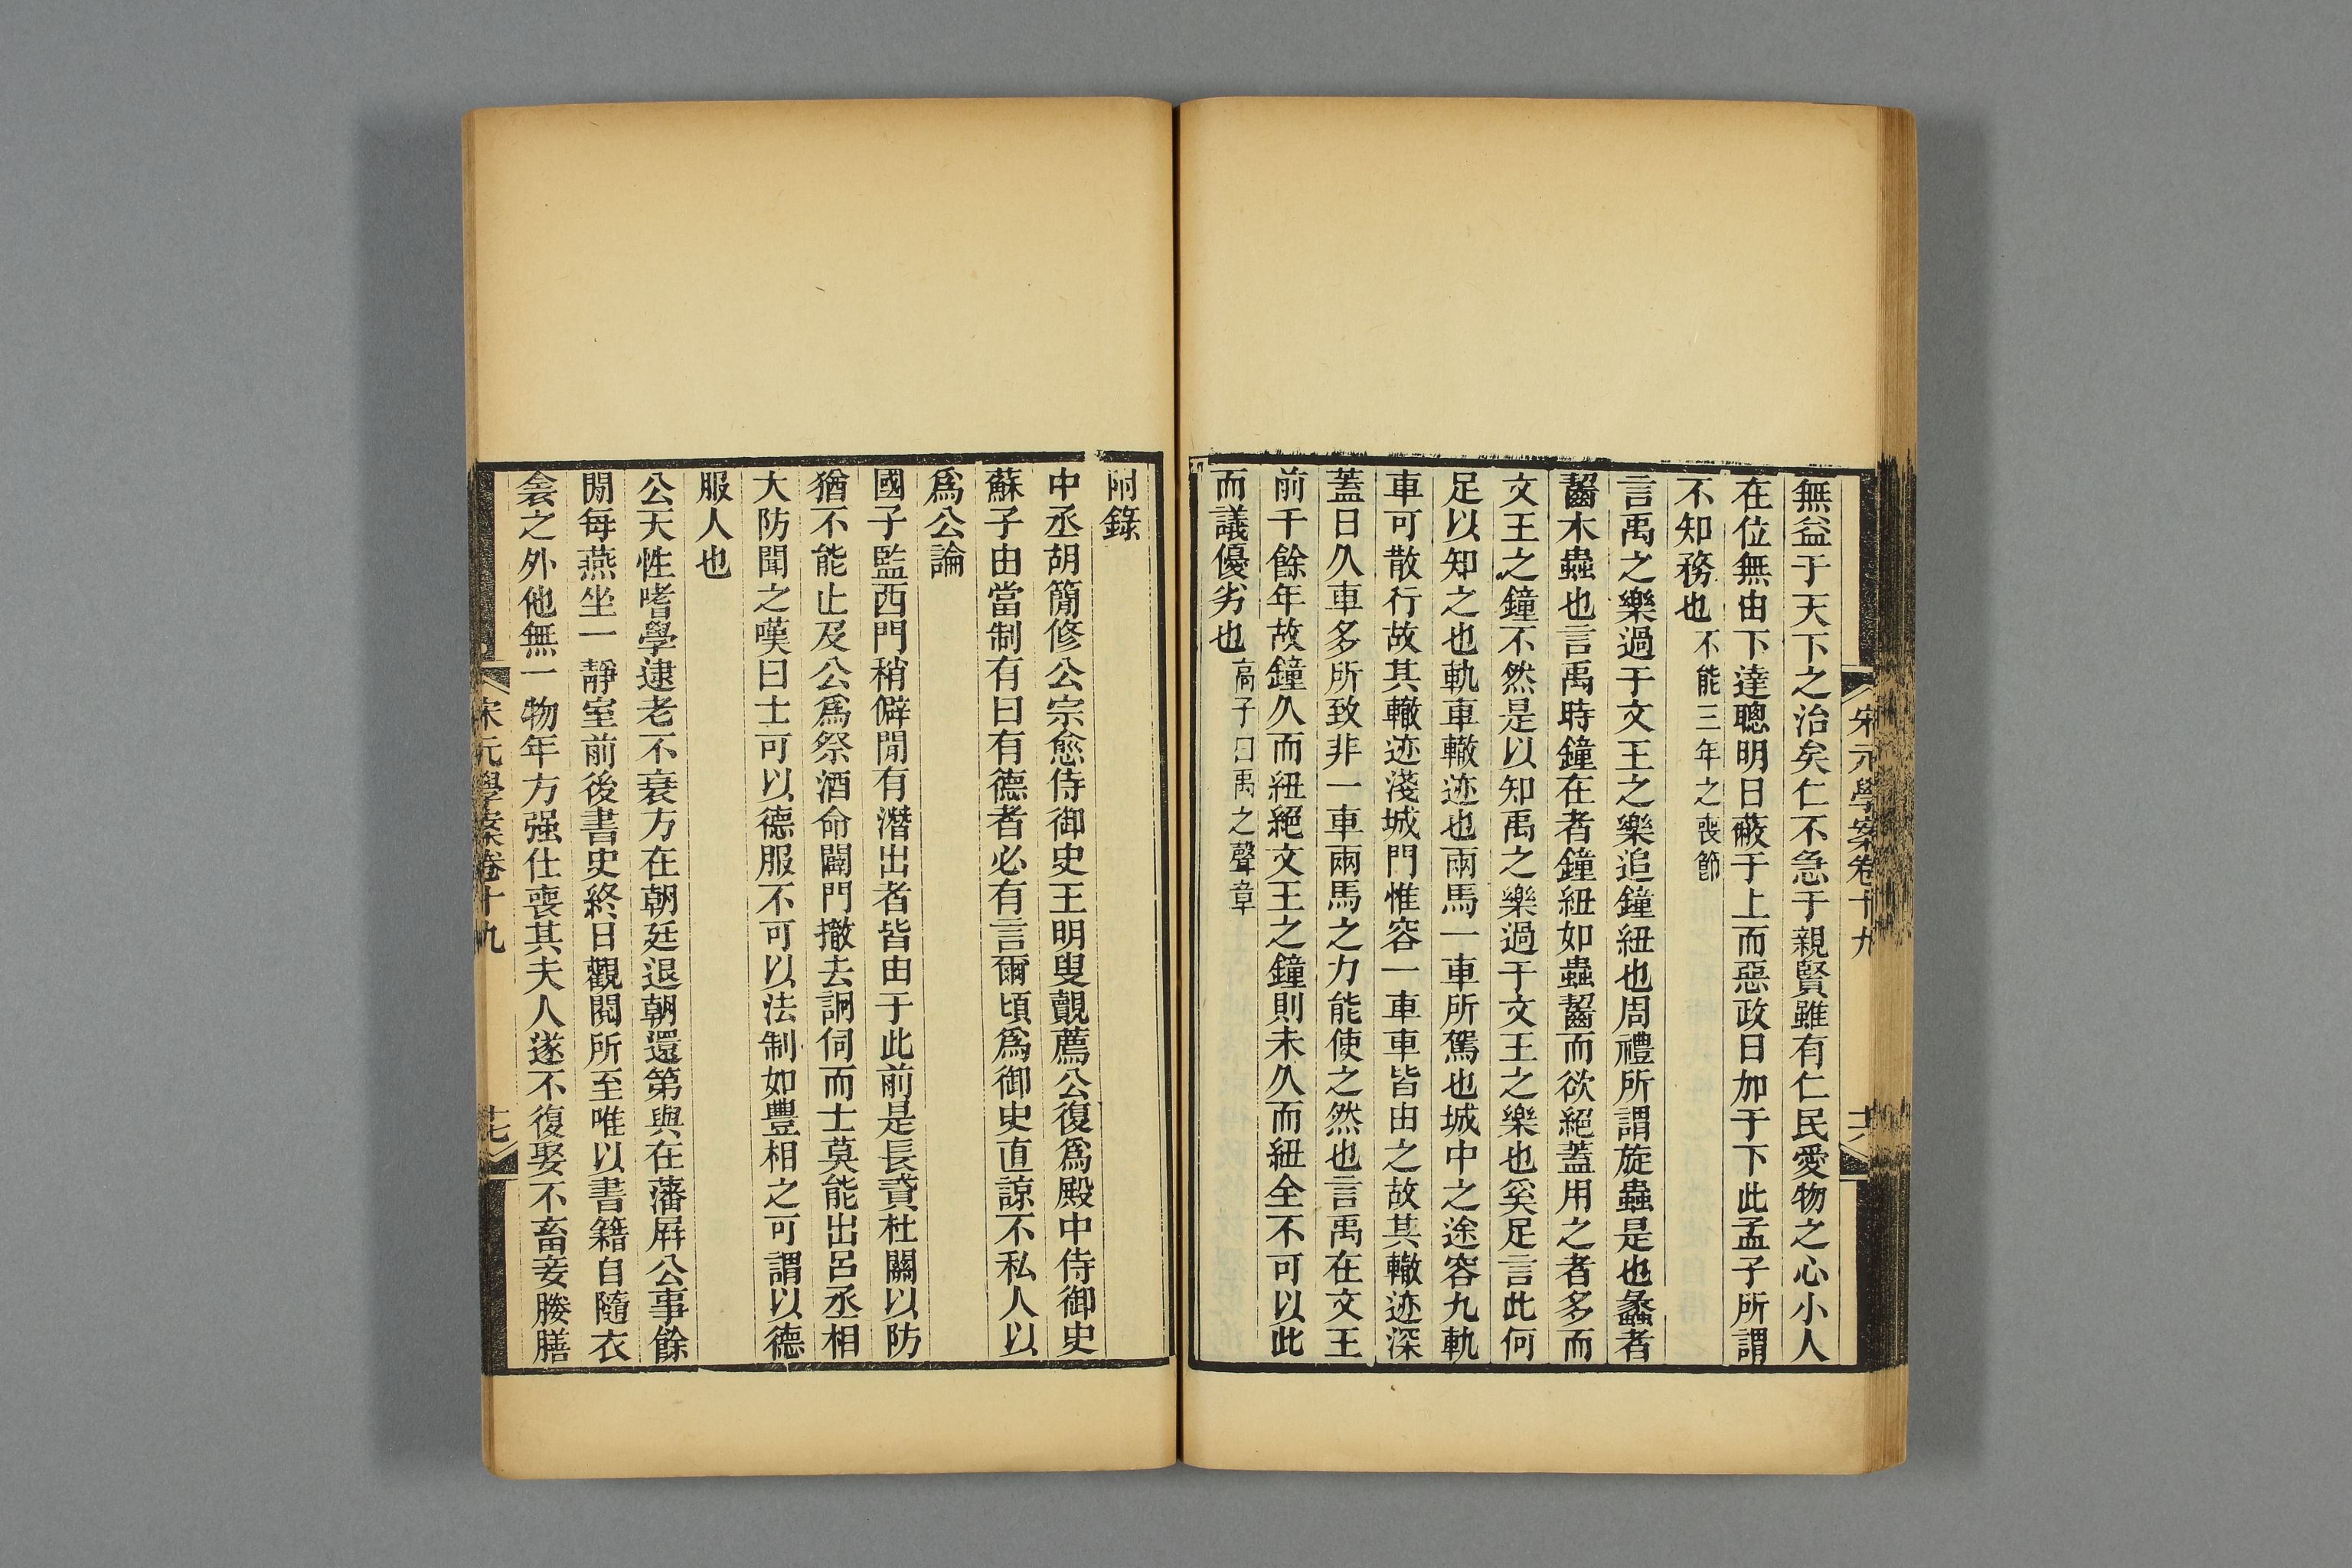 無益于天下之治矣仁不急于親賢雖有仁民愛物之心小人
在位無由下達聰明日蔽于上而惡政日加于下此孟子所謂
不知務也不能三年之喪節
言禹之樂過于文王之樂追鐘紐也周禮所謂旋蟲是也蠡者
齧木蟲也言禹時鐘在者鐘紐如蟲齧而欲絕蓋用之者多而
文王之鐘不然是以知禹之樂過于文王之樂也奚足言此何
足以知之也軌車轍迹也兩馬一車所駕也城中之途容九軌
車可散行故其轍迹淺城門惟容一車車皆由之故其轍迹深
蓋日久車多所致非一車兩馬之力能使之然也言禹在文王
前千餘年故鐘久而紐絕文王之鐘則未久而紐全不可以此
而議優劣也高子曰禹之聲章
宋元學案卷十九
十六
附錄
中丞胡簡修公宗愈侍御史王明叟覿薦公復爲殿中侍御史
蘇子由當制有曰有德者必有言爾頃爲御史直諒不私人以
爲公論
國子監西門稍僻閒有潛出者皆由于此前是長貳杜關以防
猶不能止及公爲祭酒命闢門撤去詗伺而士莫能出呂丞相
大防聞之嘆曰士可以德服不可以法制如豐相之可謂以德
服人也
公天性嗜學逮老不衰方在朝廷退朝還第與在藩屛公事餘
閒每燕坐一靜室前後書史終日觀閱所至唯以書籍自隨衣
衾之外他無一物年方强仕喪其夫人遂不復娶不畜妾媵膳
宋元學案卷十九
十七